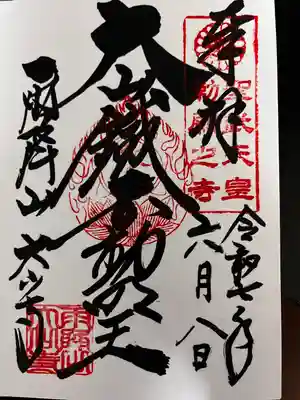 奉拝
聖武天皇
勅願之寺
令和七年
六月八日
大山鐵不動明王
雨降山 大山寺